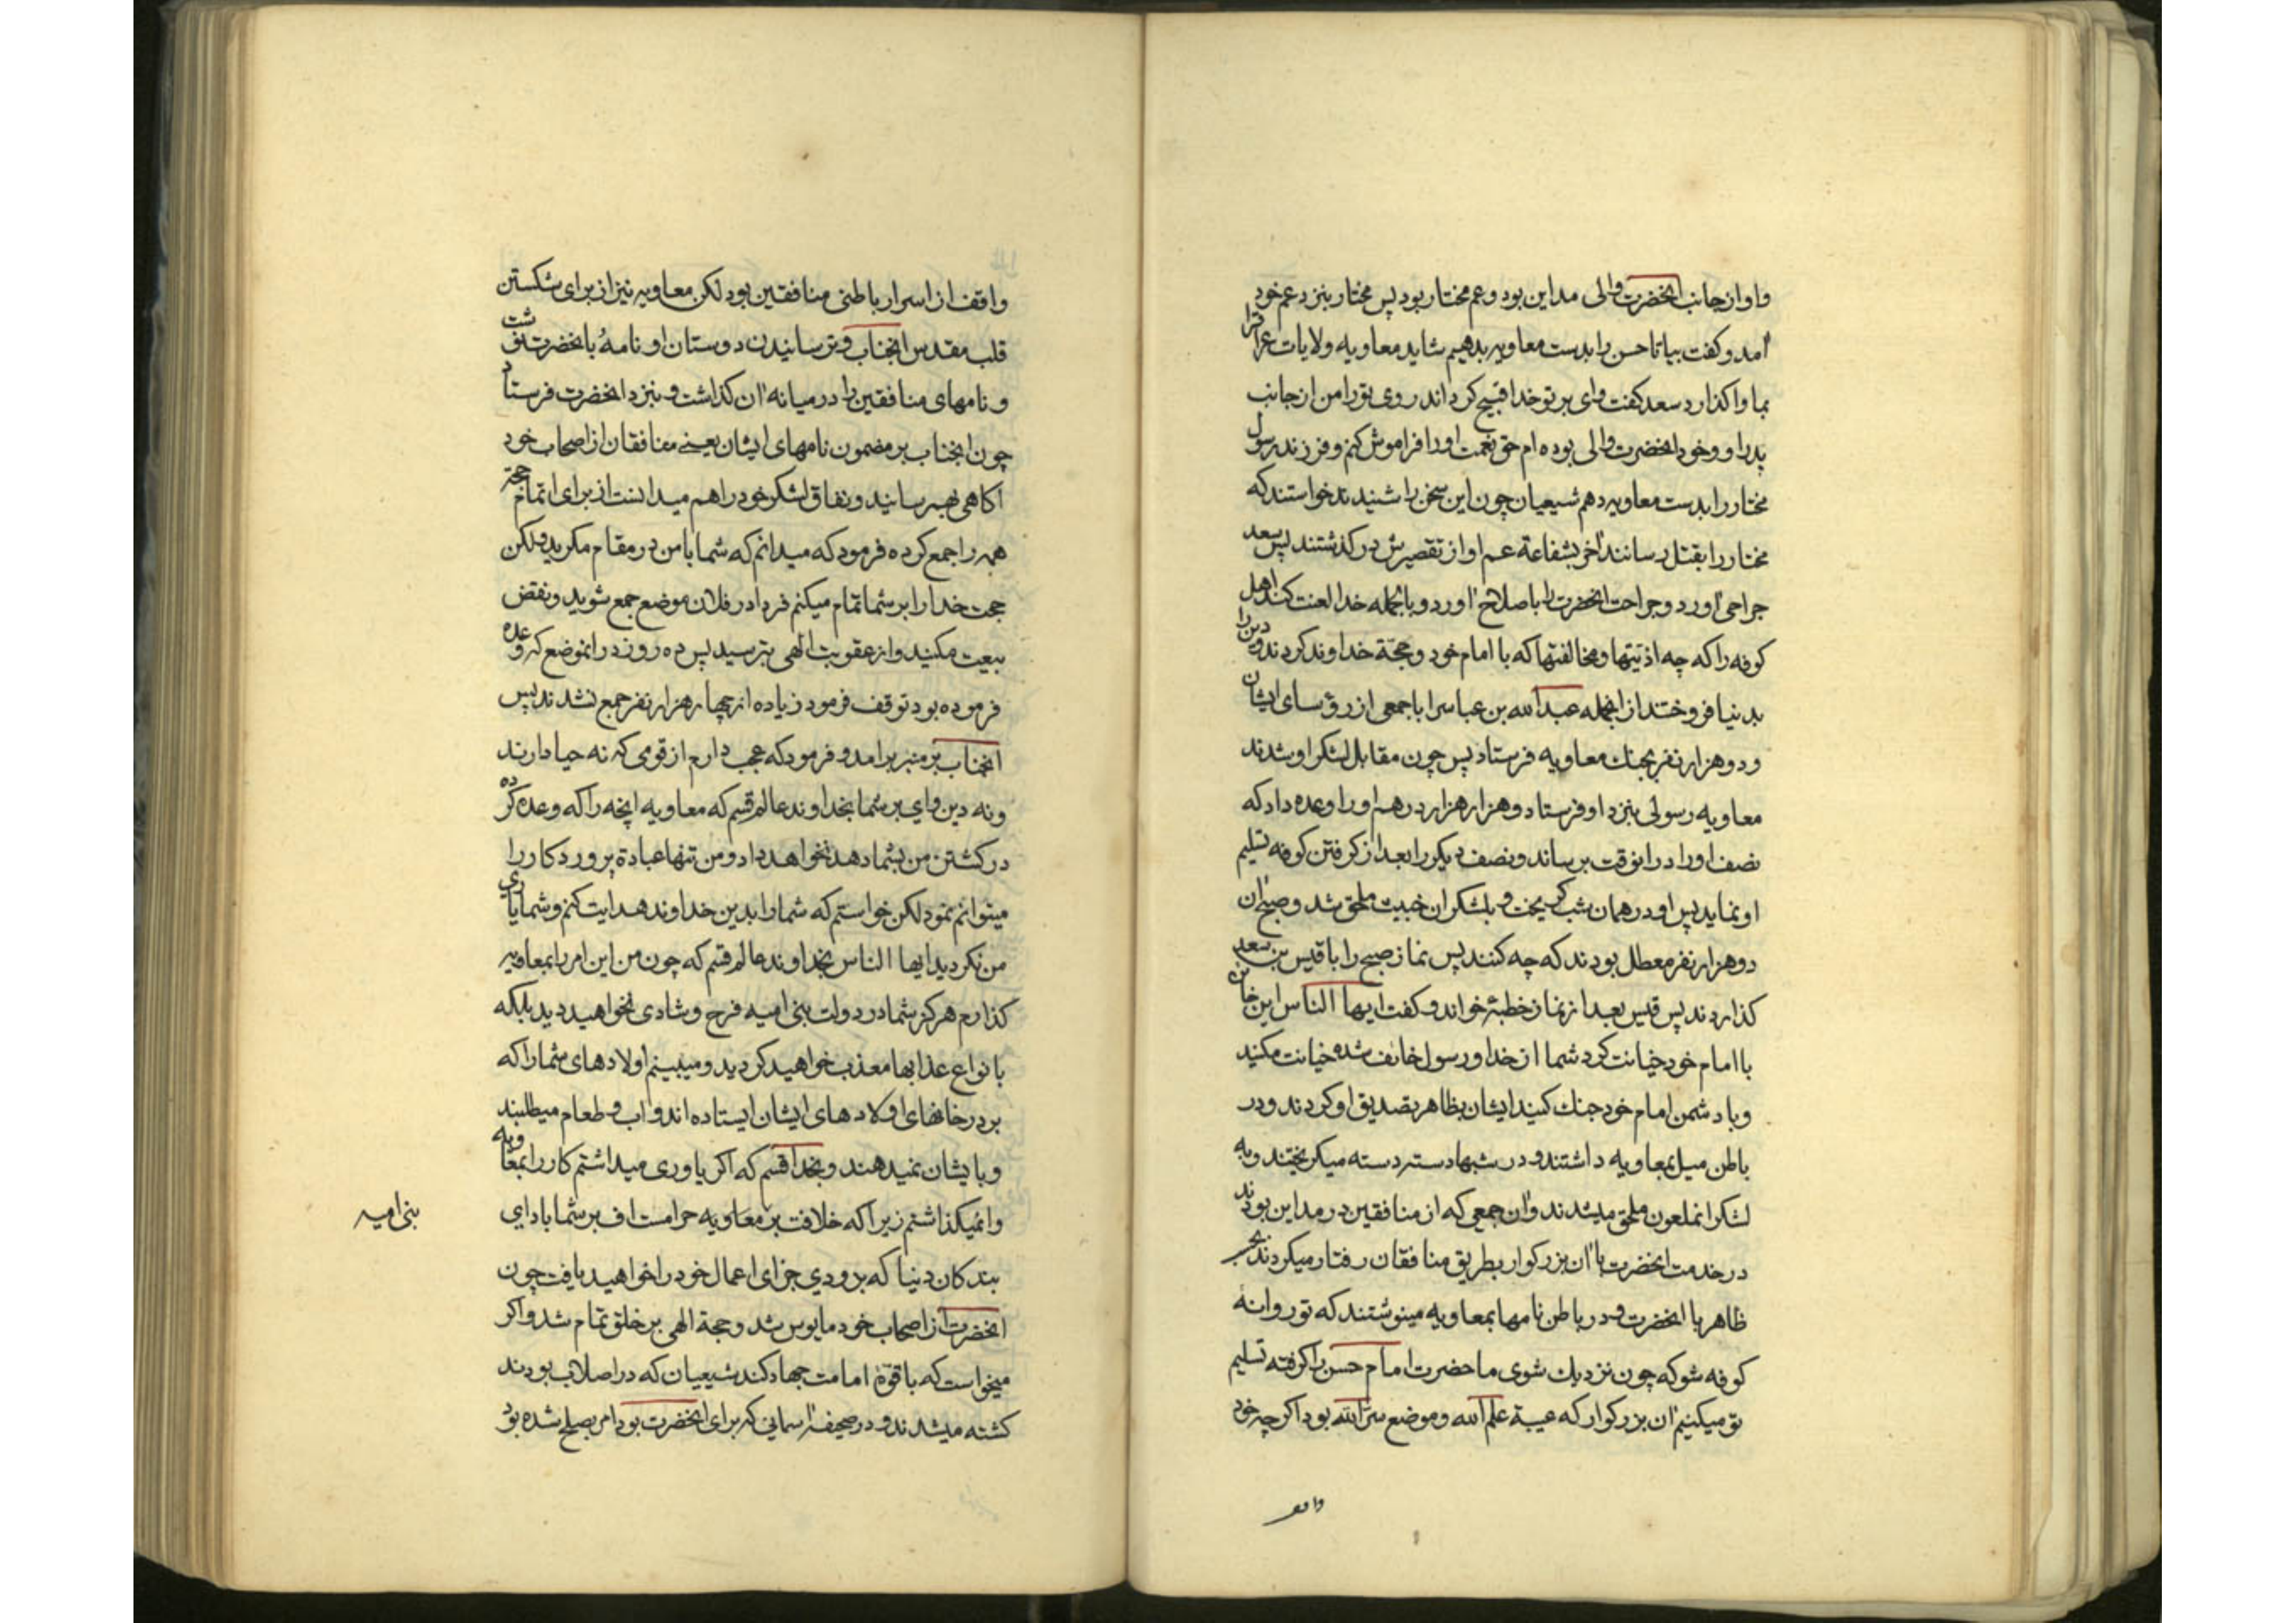 و او از جانب انحضرت والی مداین بود و عم مختار بود پس مختار بنزد عم خود
آمد و کفت بیا تا حسن را بدست معاویه بدهیم شاید معاویه ولایات عراقرا
بما واکذارد سعد کفت وای بر تو خدا قبیح کرداند روی تو را من از جانب
پدر او و خود انحضرت والی بوده ام حق نعمت او را فراموش کنم و فرزند رسول
مختار را بدست معاویه دهم شیعیان چون این سخن را شنیدند خواستند که
مختار را بقتل رسانند آخر بشفاعة عم او از تقصیرش درکذشتند پس سعد
جراحی آورد و جراحت انحضرت را باصلاح آورد و بالجمله خدا لعنت کند اهل
کوفه را که چه اذیتها و مخالفتها که با امام خود و حجّة خداوند کردند و دین را
بدنیا فروختند از انجمله عبدالله بن عباس را با جمعی از رؤسای ایشان
و دو هزار نفر بجنك معاویه فرستاد پس چون مقابل لشکر او شدند
معاویه رسولی بنزد او فرستاد و هزار هزار درهم او را وعده داد که
نصف او را در انوقت برساند و نصف دیکر را بعد از کرفتن کوفه تسلیم
او نماید پس او در همان شب کریخت و بلشکر ان خبیث ملحق شد و صبح آن
دو هزار نفر معطل بودند که چه کنند پس نماز صبح را با قیس بن سعد
کذاردند پس قیس بعد از نماز خطبهٔ خواند و کفت ایها الناس این خاین
با امام خود خیانت کرد شما از خدا و رسول خائف شده خیانت مکنید
و با دشمن امام خود جنك کنید ایشان بظاهر تصدیق او کردند و در
باطن میل بمعاویه داشتند و در شبها دسته دسته میکریختند و به
لشکر انملعون ملحق میشدند و آن جمعی که از منافقین در مداین بودند
در خدمت انحضرت با آن بزرکوار بطریق منافقان رفتار میکردند
ظاهر با انحضرت و در باطن نامها بمعاویه مینوشتند که تو روانه
کوفه شو که چون نزدیك شوی ما حضرت امام حسن را کرفته تسلیم
تو میکنیم آن بزرکوار که عیبة علم الله و موضع سرّ الله بود اکرچه خود
واقف
واقف از اسرار باطنی منافقین بود لکن معاویه نیز از برای شکستن
قلب مقدس انجناب و ترسانیدن دوستان او نامهٔ بانحضرت نوشت
و نامهای منافقین را در میانه آن کذاشت و بنزد انحضرت فرستاد
چون انجناب بر مضمون نامهای ایشان یعنی منافقان از اصحاب خود
آکاهی بهم رسانید و نفاق لشکر خود را هم میدانست از برای اتمام حجّة
همه را جمع کرده فرمود که میدانم که شما با من در مقام مکرید ولکن
حجت خدا را بر شما تمام میکنم فردا در فلان موضع جمع شوید و نقض
بیعت مکنید و از عقوبت الهی بترسید پس ده روز در انموضع که وعده
فرموده بود توقف فرمود زیاده از چهار هزار نفر جمع نشدند پس
انجناب بر منبر برامد و فرمود که عجب دارم از قومی که نه حیا دارند
و نه دین وای بر شما بخداوند عالم قسم که معاویه انچه را که وعده کرده
در کشتن من بشما دهد نخواهد داد و من تنها عبادة پروردکار را
میتوانم نمود لکن خواستم که شما را بدین خداوند هدایت کنم و شما یاری
من نکردید ایها الناس بخداوند عالم قسم که چون من این امر را بمعاویه
کذارم هرکز شما در دولت بنی امیه فرح و شادی نخواهید دید بلکه
بانواع عذابها معذب خواهید کردید و میبینم اولادهای شما را که
بر در خانهای اولادهای ایشان ایستاده اند و اب و طعام میطلبند
و بایشان نمیدهند و بخدا قسم که اکر یاوری میداشتم کار را بمعاویه
وانمیکذاشتم زیرا که خلافت بر معاویه حرامست اف بر شما باد ای
بنی امیه
بندکان دنیا که بزودی جزای اعمال خود را خواهید یافت چون
انحضرت از اصحاب خود مایوس شد و حجة الهی بر خلق تمام شد و اکر
میخواست که با قوّهٔ امامت جهاد کند شیعیان که در اصلاب بودند
کشته میشدند و در صحیفهٔ آسمانی که برای انحضرت بود امر بصلح شده بود